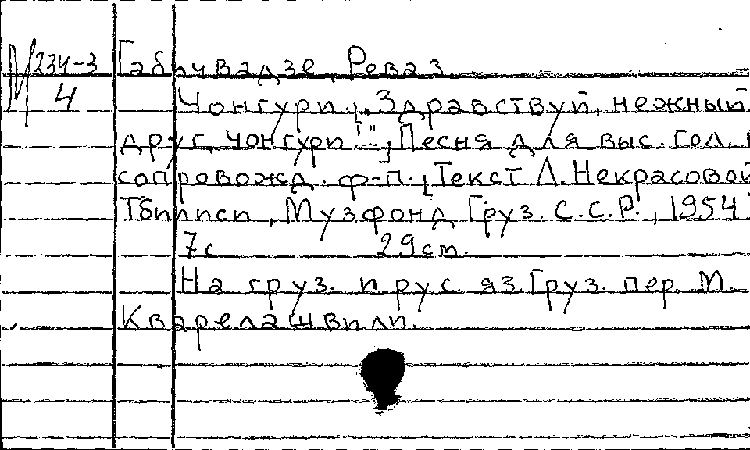 М 234-3 Габичвадзе, Реваз
4 Чонгури. "Здравствуй, нежный
друг, чонгури!", Песня для выс. гол. в
сопровожд. ф-п., Текст Л. Некрасовой
Тбилиси, Музфонд Груз. С.С.Р., 1954
7с 29 cm.
На груз. и рус яз. Груз. пер. М.
Кварелашвили.